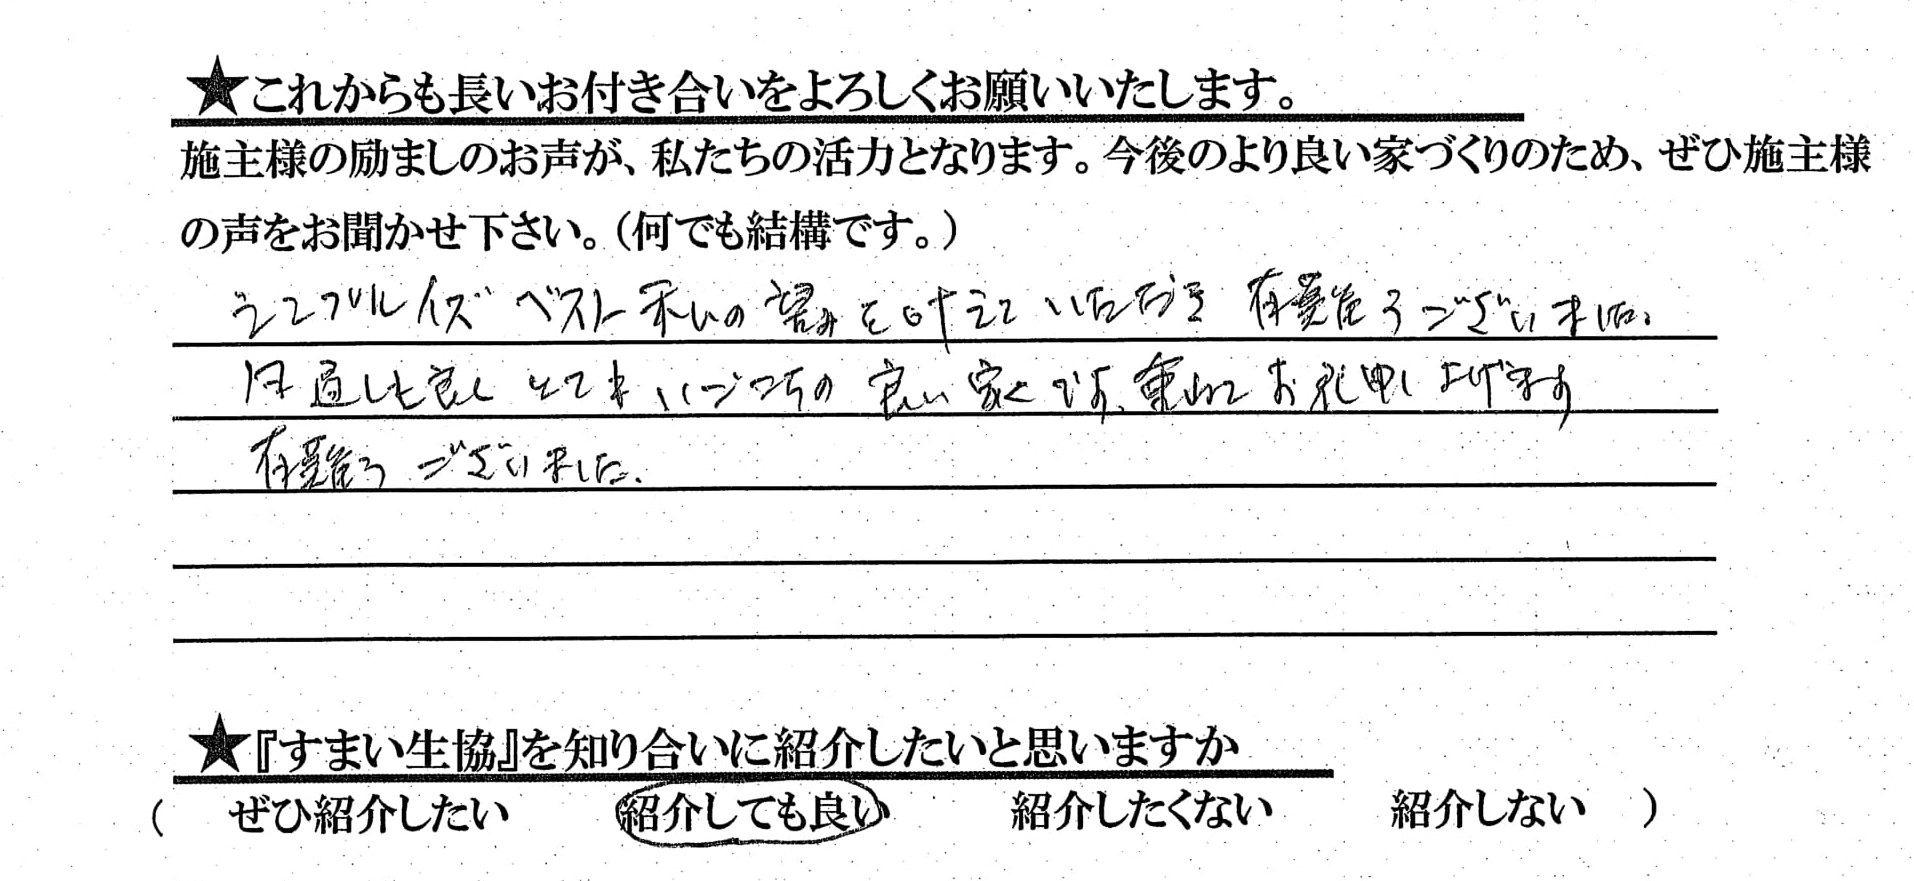 ★これからも長いお付き合いをよろしくお願いいたします。
施主様の励ましのお声が、私たちの活力となります。今後のより良い家づくりのため、ぜひ施主様
の声をお聞かせ下さい。（何でも結構です。）
シンプルイズベスト 私いの望みを叶えていただき 有難うございました。
日通しも良く とても いごこちの 良い家です、重ねてお礼申し上げます
有難うございました。
★『すまい生協』を知り合いに紹介したいと思いますか
（ ぜひ紹介したい 紹介しても良い 紹介したくない 紹介しない ）